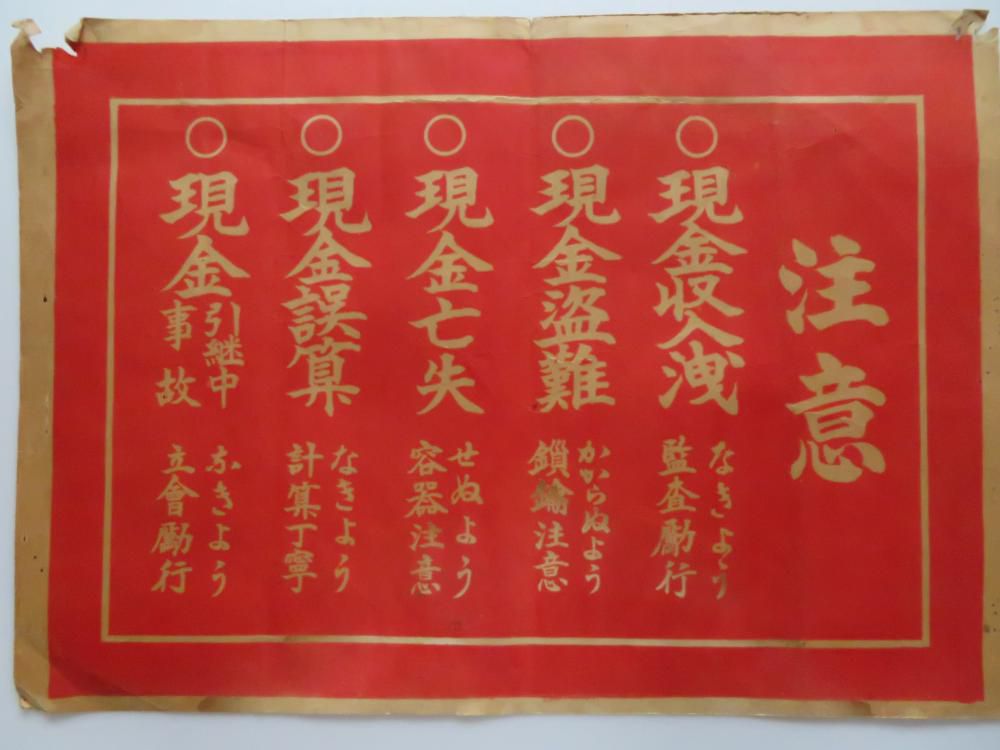 注意
○現金収入洩
なきよう
監査勵行
○現金盗難
かからぬよう
鎖鑰注意
○現金亡失
せぬよう
容器注意
○現金誤算
なきよう
計算丁寧
○現金引継中事故
なきよう
立會勵行